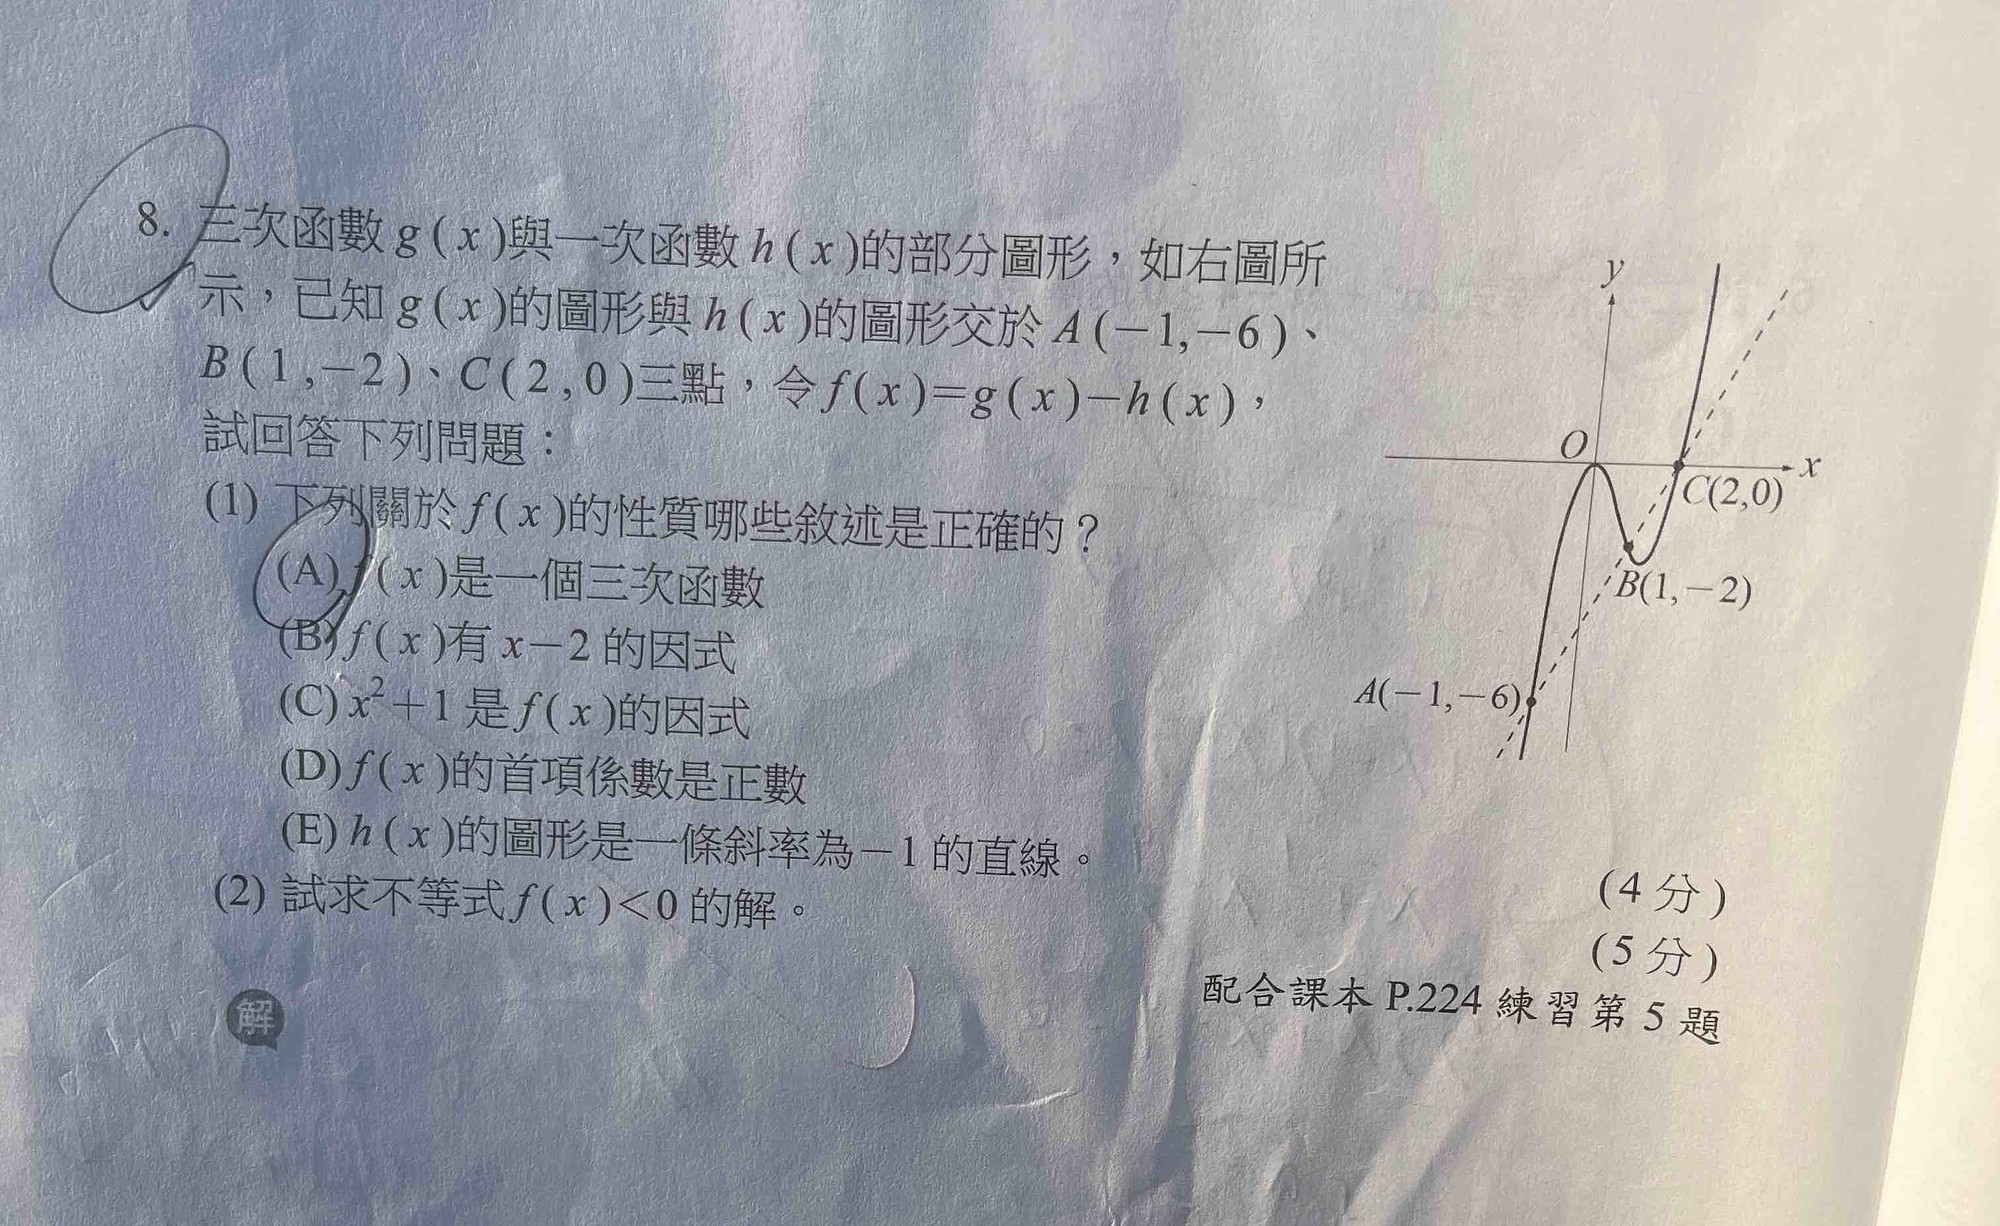 8. 三次函數 g(x)與一次函數 h(x)的部分圖形，如右圖所
示，已知 g(x)的圖形與 h(x)的圖形交於 A(−1,−6)、
B(1,−2)、C(2,0)三點，令 f(x)=g(x)−h(x)，
試回答下列問題：
(1) 下列關於 f(x)的性質哪些敘述是正確的？
(A) f(x)是一個三次函數
(B) f(x)有 x−2 的因式
(C) x²+1 是 f(x)的因式
(D) f(x)的首項係數是正數
(E) h(x)的圖形是一條斜率為−1 的直線。
(4 分)
(2) 試求不等式 f(x)<0 的解。
(5 分)
配合課本 P.224 練習第 5 題
解
y
O
x
C(2,0)
B(1,−2)
A(−1,−6)